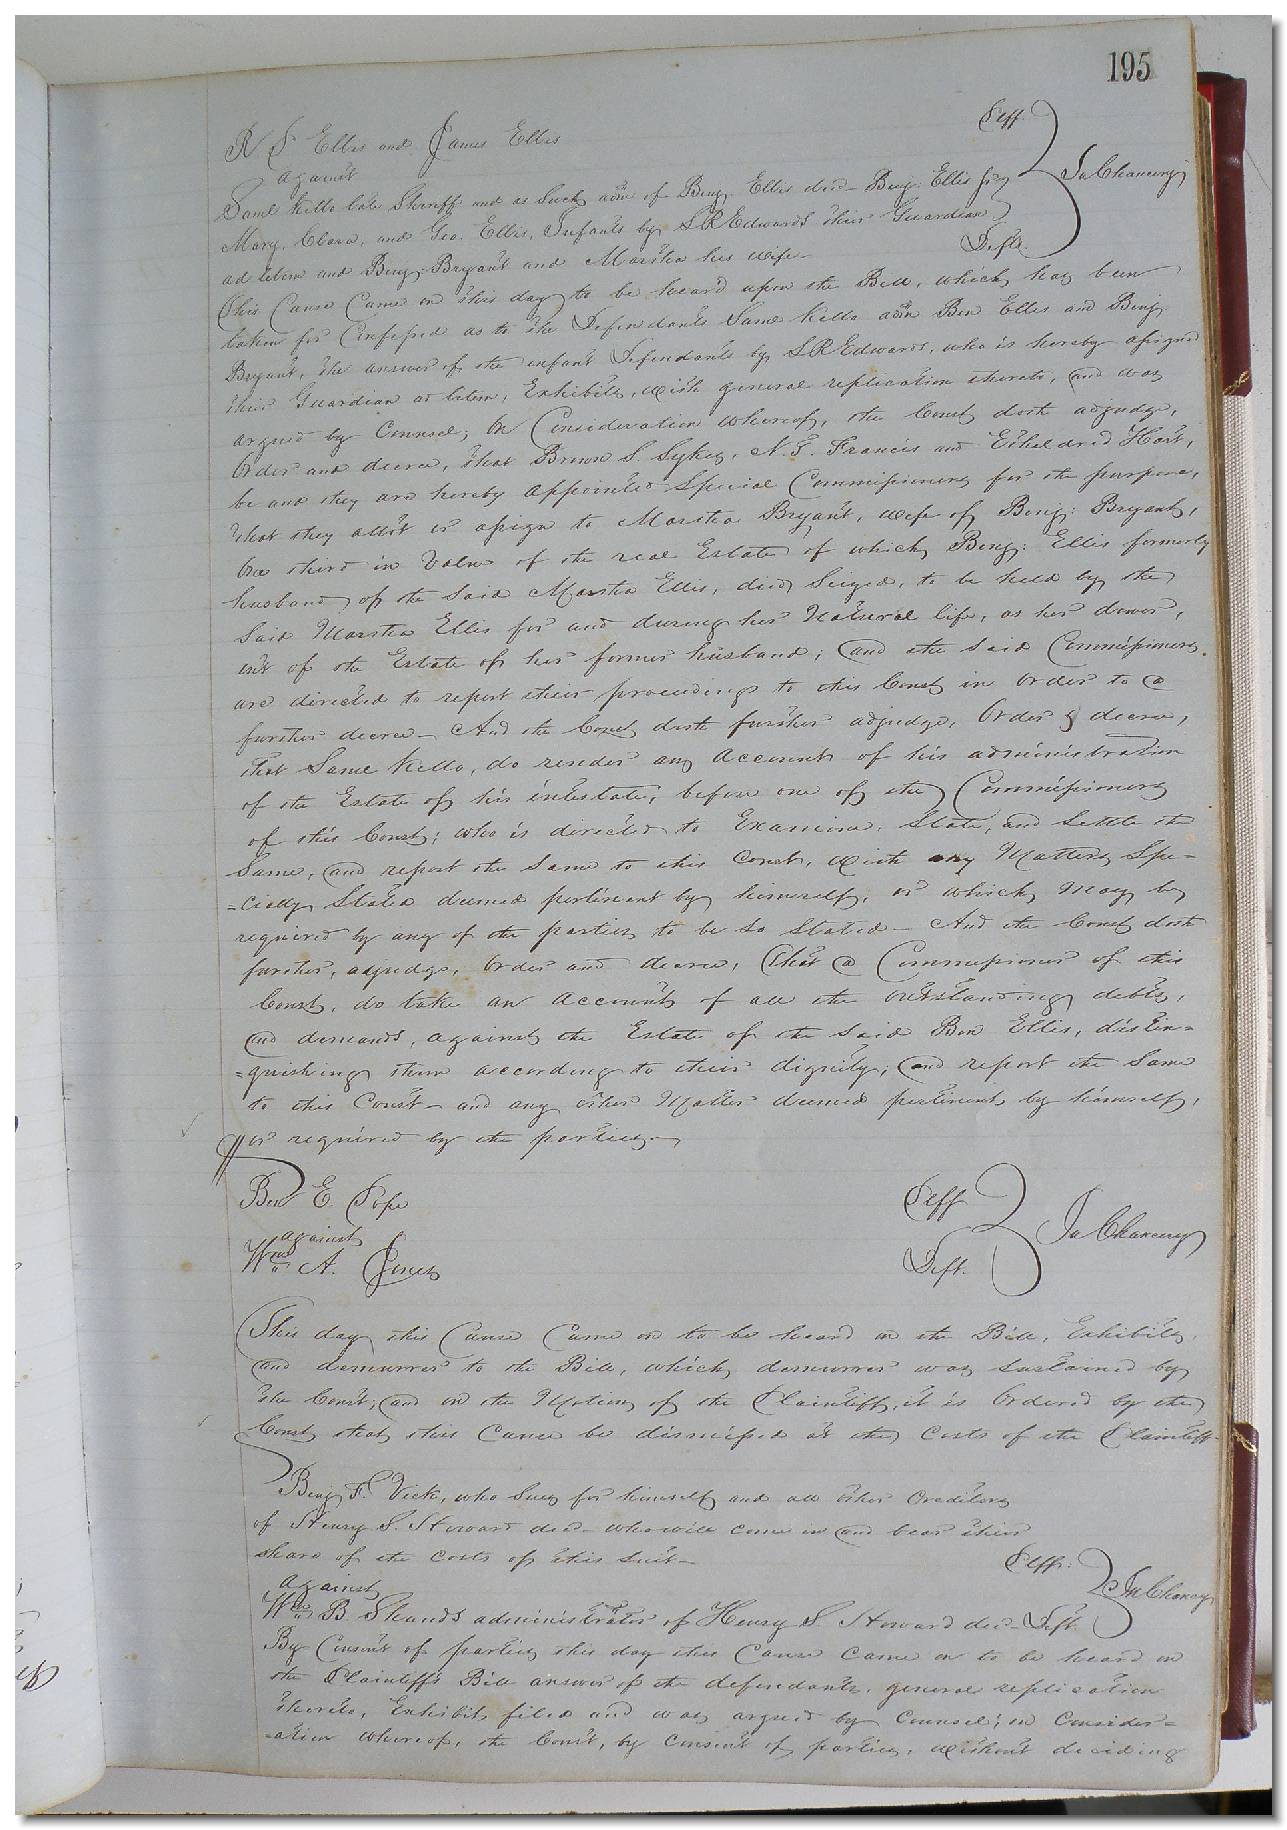 195
R S Ellis and James Ellis Plff
against In Chancery
Saml Kello late Sheriff and as Such adm of Benj. Ellis decd - Benj. Ellis jr,
Mary, Clara, and Geo. Ellis, Infants by S R Edwards their Guardian
ad litem and Benj. Bryant and Martha his wife - Defts.
This Cause Came on this day to be heard upon the Bill, which has been
taken for Confessed as to the Defendants Saml Kello adm Ben Ellis and Benj.
Bryant, the answer of the infant Defendants by S R Edwards, who is hereby assigned
their Guardian ad litem, Exhibits, with general replication thereto, and was
argued by Counsel; On Consideration whereof, the Court doth adjudge,
Order and decree, that S. Sykes, N. T. Francis and Etheldred Hart,
be and they are hereby appointed Special Commissioners for the purpose,
that they allot or assign to Martha Bryant, wife of Benj: Bryant,
One third in Value of the real Estate of which Benj: Ellis formerly
husband of the Said Martha Ellis, died Seized, to be held by the
Said Martha Ellis for and during her Natural life, as her dower,
out of the Estate of her former husband; and the said Commissioners.
are directed to report their proceedings to this Court in Order to a
further decree - And the Court doth further adjudge, Order & decree,
that Saml Kello, do render an Account of his administration
of the Estate of his intestate, before one of the Commissioners
of this Court; who is directed to Examine, State, and Settle the
Same, and report the Same to this Court, with any Matters Spe-
-cially Stated deemed pertinent by himself, or which May be
required by any of the parties to be so Stated - And the Court doth
further, adjudge, Order and decree, that a Commissioner of this
Court, do take an Account of all the outstanding debts,
and demands, against the Estate of the Said Ben Ellis, distin-
=guishing them according to their dignity; and report the Same
to this Court - and any other Matter deemed pertinent by himself,
or required by the parties -
Ben E Pope Plff
against In Chancery
Wm A. Jones Deft.
This day this Cause Came on to be heard on the Bill, Exhibits,
and demurrer to the Bill, which demurrer was Sustained by
the Court; and on the Motion of the Plaintiff, it is Ordered by the
Court that this Cause be dismissed at the Costs of the Plaintiff
Benj F. Vick, who Sues for himself and all other Creditors
of Henry S. Howard decd - who will come in and bear their
Share of the Costs of this Suit - Plff.
against In Chancery
Wm B Shands administrator of Henry S. Howard decd - Deft.
By Consent of parties this day this Cause came on to be heard on
the Plaintiffs Bill answer of the defendants, general replication
thereto, Exhibits filed and was argued by Counsel; on Consider-
-ation whereof, the Court, by Consent of parties, without deciding